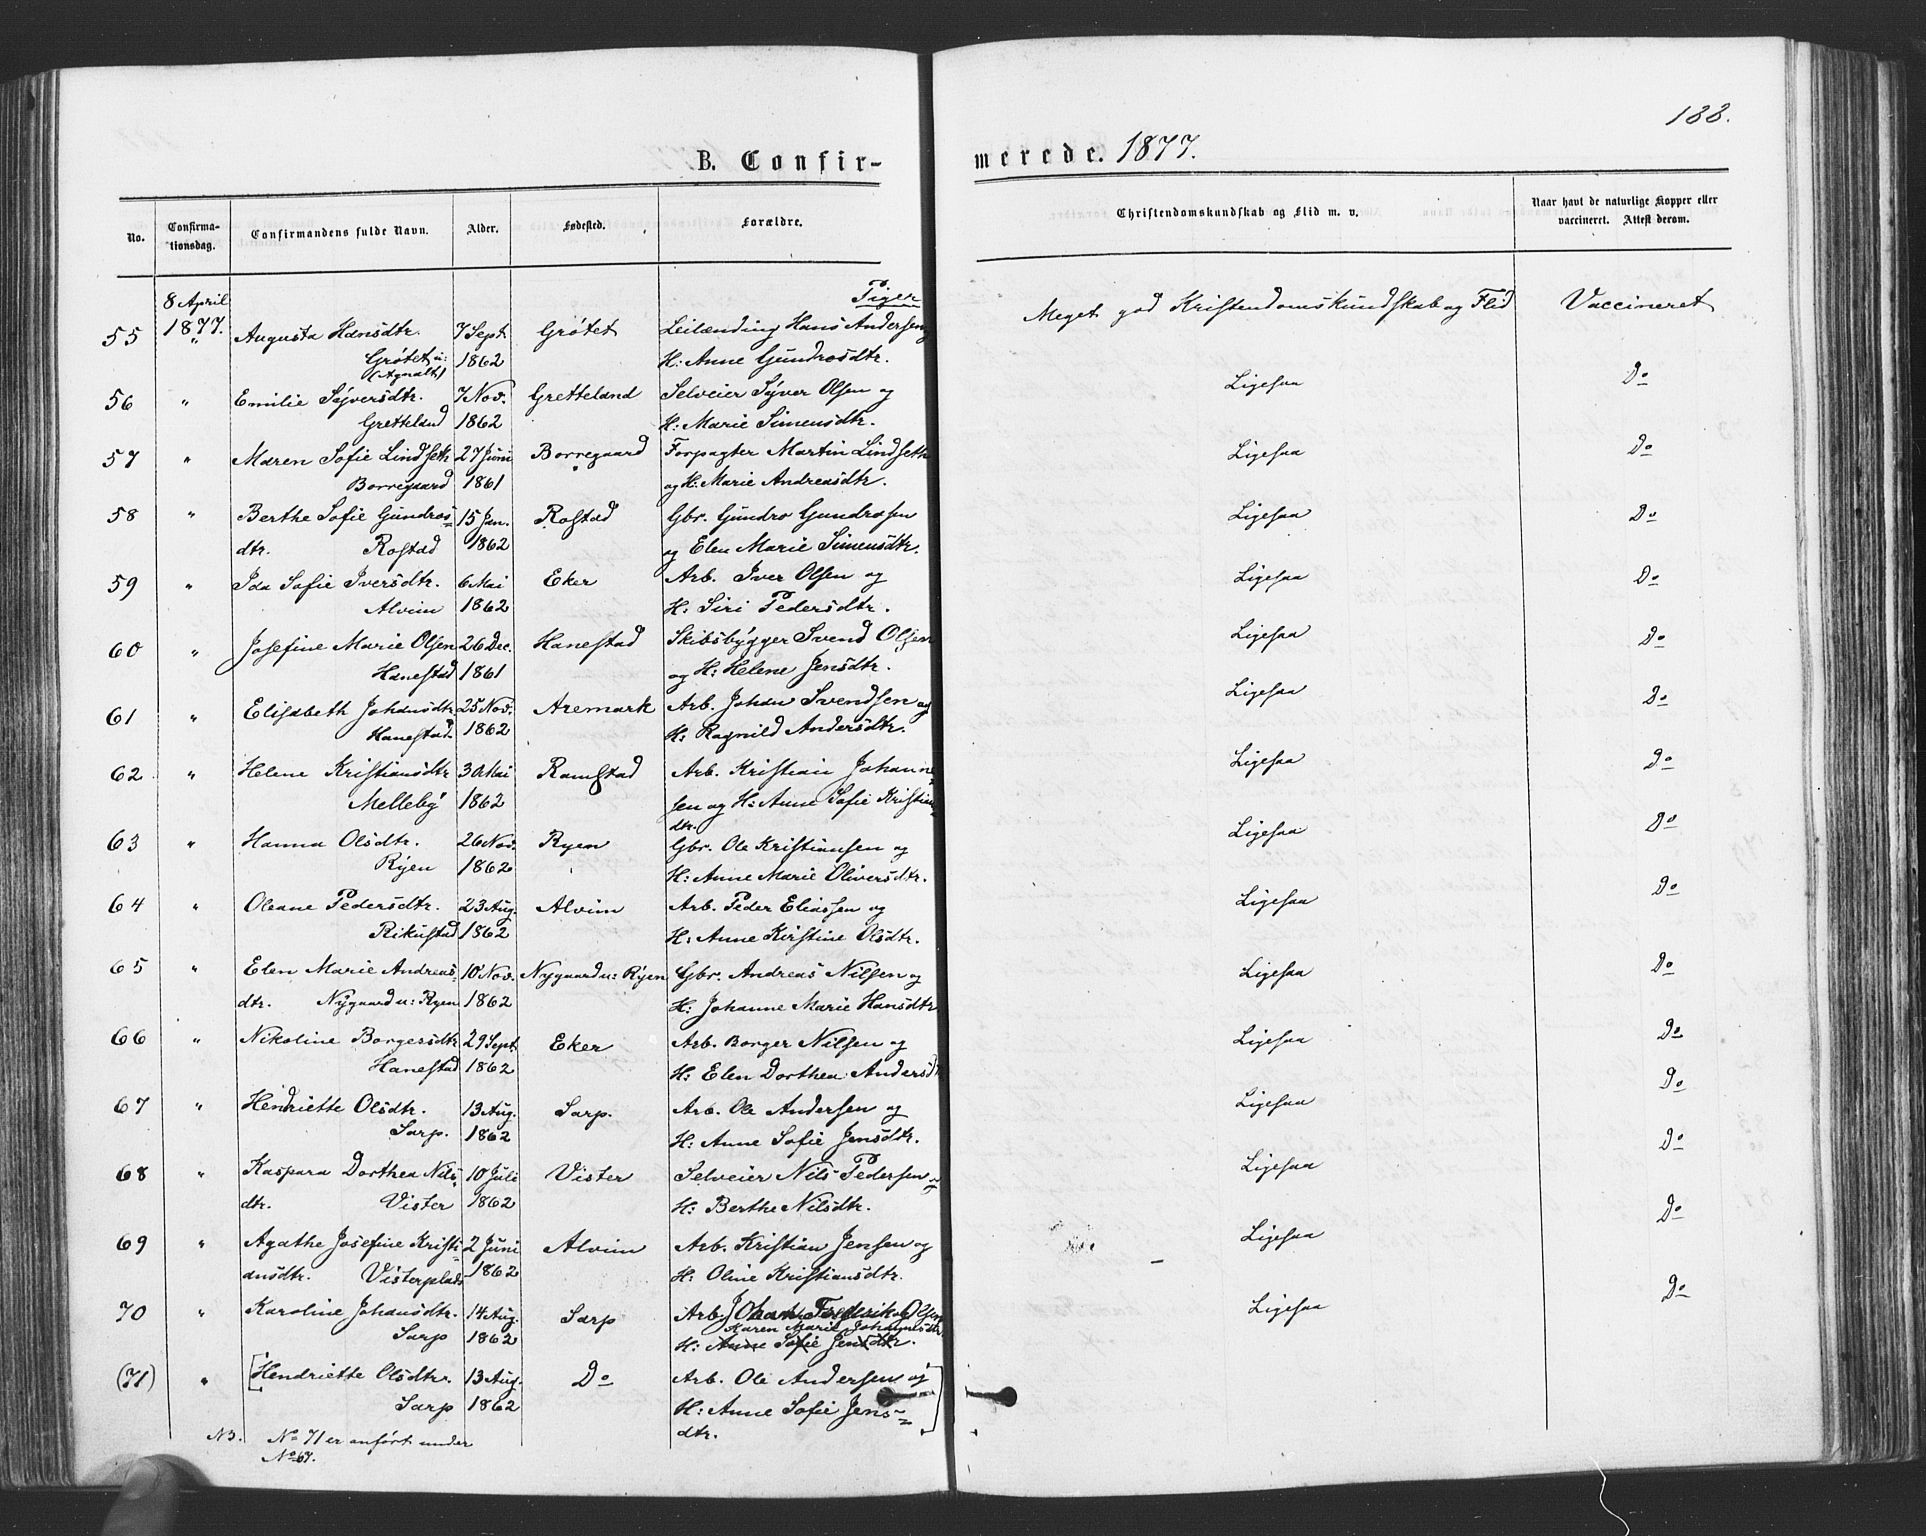 188.
B. Confir-
merede. 1877.
No.
Confirma-
tionsdag.
Confirmandens fulde Navn.
Alder.
Fødested.
Forældre.
Christendomskundskab og Flid m. v.
Naar havt de naturlige Kopper eller
vaccineret. Attest derom.
Piger
8 April
55 1877. Augusta Hansdtr. 7 Sept Grøtet Leilænding Hans Andersen og Meget god Kristendomskundskab og Flid Vaccineret
" Grøtet u: 1862 H: Anne Gundrosdtr.
(Agnalt)
56 " Emilie Syversdtr. 7 Nov. Gretteland Selveier Syver Olsen og Ligesaa Do
Gretteland 1862 H: Marie Simensdtr.
57 " Maren Sofie Lindseth 27 Juni Borregaard Forpagter Martin Lindseth Ligesaa Do
Borregaard 1861 og H: Marie Andreasdtr.
58 " Berthe Sofie Gundros- 15 Jan. Rostad Gbr. Gundro Gundrosen Ligesaa Do
dtr. Rostad 1862 og Elen Marie Simensdtr.
59 " Ida Sofie Iversdtr. 6 Mai Eker Arb. Iver Olsen og Ligesaa Do
Alvim 1862 H: Siri Pedersdtr.
60 " Josefine Marie Olsen 26 Dec. Hanestad Skibsbygger Svend Olsen Ligesaa Do
Hanestad 1861 og H: Helene Jensdtr.
61 " Elisabeth Johansdtr 25 Nov. Aremark Arb. Johan Svendsen og Ligesaa Do
Hanestad. 1862 H: Ragnild Andersdtr.
62 " Helene Kristiansdtr 30 Mai Ramstad Arb. Kristian Johanne- Ligesaa Do
Melleby 1862 sen og H: Anne Sofie Kristian-
dtr.
63 " Hanna Olsdtr. 26 Nov. Ryen Gbr. Ole Kristiansen og Ligesaa Do
Ryen 1862 H: Anne Marie Oliversdtr.
64 " Oleane Pedersdtr. 23 Aug. Alvim Arb. Peder Eliassen og Ligesaa Do
Rikustad 1862 H: Anne Kirstine Olsdtr.
65 " Elen Marie Andreas- 10 Nov. Nygaard u: Ryen Gbr. Andreas Nilsen og Ligesaa Do
dtr. Nygaard u: Ryen 1862 H: Johanne Marie Hansdtr
66 " Nikoline Borgersdtr 29 Sept Eker Arb. Borger Nilsen og Ligesaa Do
Hanestad 1862 H: Elen Dorthea Andersdtr
67 " Henriette Olsdtr. 13 Aug. Sarp. Arb. Ole Andersen og Ligesaa Do
Sarp. 1862 H: Anne Sofie Jensdtr.
68 " Kaspara Dorthea Nils- 10 Juli Vister Selveier Nils Pedersen og Ligesaa Do
dtr. Vister 1862 H: Berthe Nilsdtr.
69 " Agathe Josefine Kristi- 2 Juni Alvim Arb. Kristian Jensen og Ligesaa Do
ansdtr. Visterplads 1862 H: Oline Kristiansdtr.
70 " Karoline Johansdtr. 14 Aug. Sarp Arb. Johan Frederik Olsen Ligesaa Do
Karen Marie Johannesdtr.
Sarp 1862 H: Anne Sofie Jensdtr.
(71) " [Henriette Olsdtr. 13 Aug. Do Arb. Ole Andersen og
Sarp 1862 H: Anne Sofie Jens-]
dtr.
NB. No 71 er anført under
No 67.